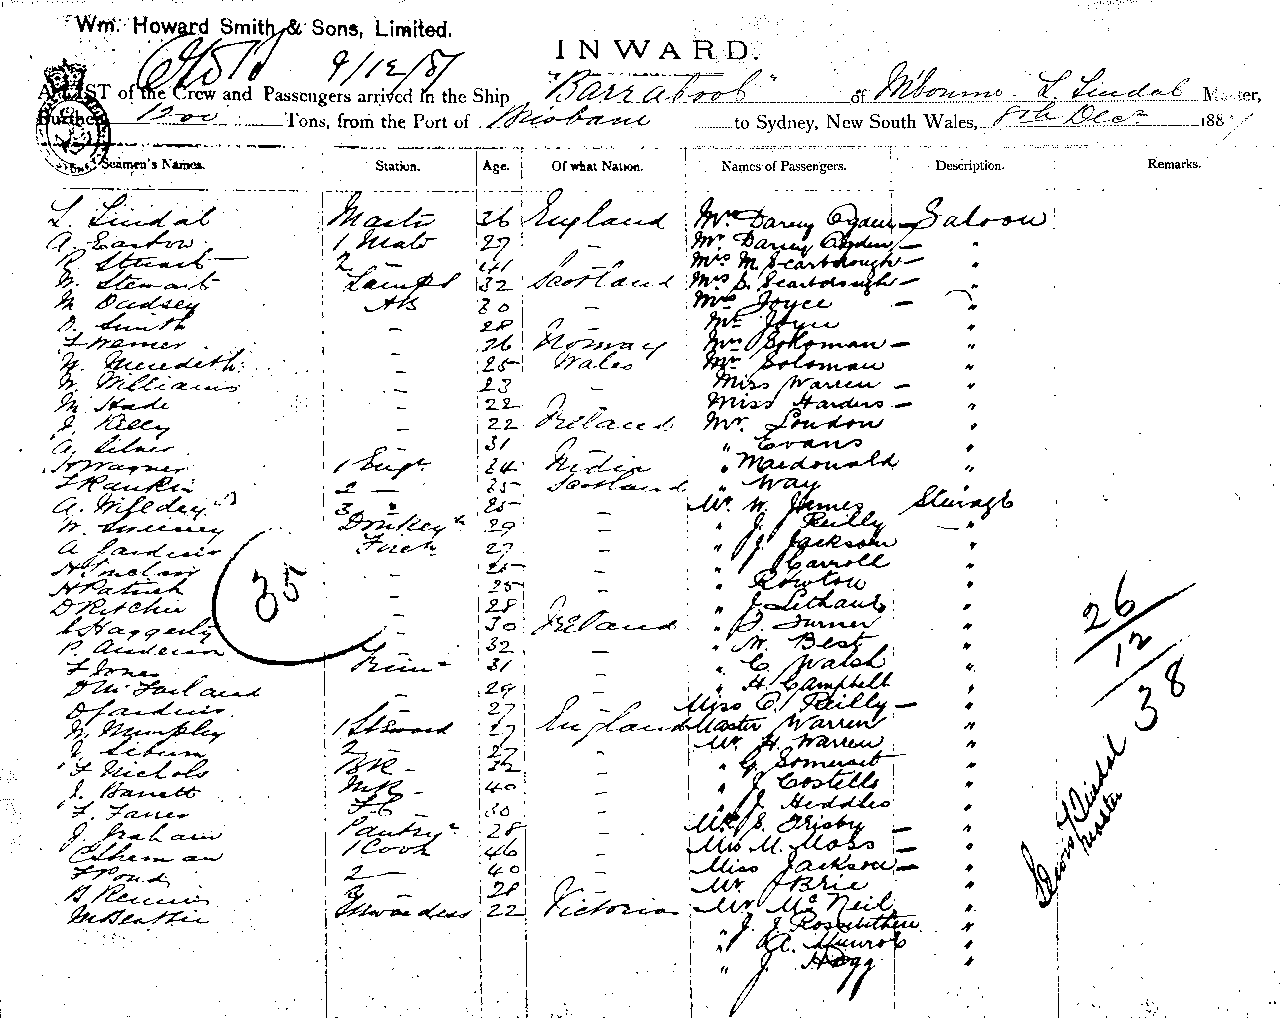 Wm. Howard Smith & Sons, Limited.
INWARD.
9/12/87
A LIST of the Crew and Passengers arrived in the Ship "Barrabool" of M'bourne L Lindal Master,
Burthen Tons, from the Port of Brisbane to Sydney, New South Wales, 8th Decr 1887
Seamen's Names. Station. Age. Of what Nation. Names of Passengers. Description. Remarks.
L Lindal Master 36 England Mrs Darcy Ogden — Saloon
A. Easton 1 Mate 27 Mr Darcy Ogden — "
R. Stuart 2 — 41 — Mrs M Scarborough — "
W. Stewart Lamps 32 Scotland Mrs S. Scarborough — "
W Dadsey AB 30 — Mrs Joyce — "
Smith — 28 Mr Joyce "
26 Norway Mrs Soloman — "
W. Meredith — 25 Wales Mr Soloman "
W. Williams — 23 — Miss Warren — "
M Hade — 22 Miss Harders — "
J Kelly — 22 Ireland Mr London "
A. 31 " Evans "
H Wagner 1 Engr 34 India " Macdonald "
F Rankin 2 — 35 Scotland " Way "
A. 3 " 25 — Mr W James Steerage
W. Sweeney Donkeyn 29 — " J. Reilly "
A Jardine Firen 27 — " J. Jackson "
H Sinclair — 25 — " Carroll "
H Patrick — 25 — " Rowton "
D Ritchie — 28 " J. "
Haggerty — 30 Ireland " J. Turner "
P. Anderson — 32 — " W. Best "
F Jones Trimr 31 — " C. Walsh "
D McFarland — 29 — " H. Campbell "
D Jardine 27 — Miss C. Reilly — "
W. Murphy 1 Steward 27 England Master Warren "
J. 2 — 27 — Mr H. Warren "
F Nichols BR — 32 — " G. Somerset "
J. Barrett MR — 40 — " J Costello "
F. FC — 30 — " J. Heddles "
J. Graham Pantry 28 — Mrs S. Grisby — "
C Sherman 1 Cook 46 — Mrs M. Moss — "
F Pond 2 — 40 — Miss Jackson — "
B Rennis 3 — 28 Mr J Brie "
M Beattie Stewardess 22 Victoria Mr McNeil "
" J. J. "
" A. Munrob "
" J. Hogg "
35
26
12
38
Lindal
Master